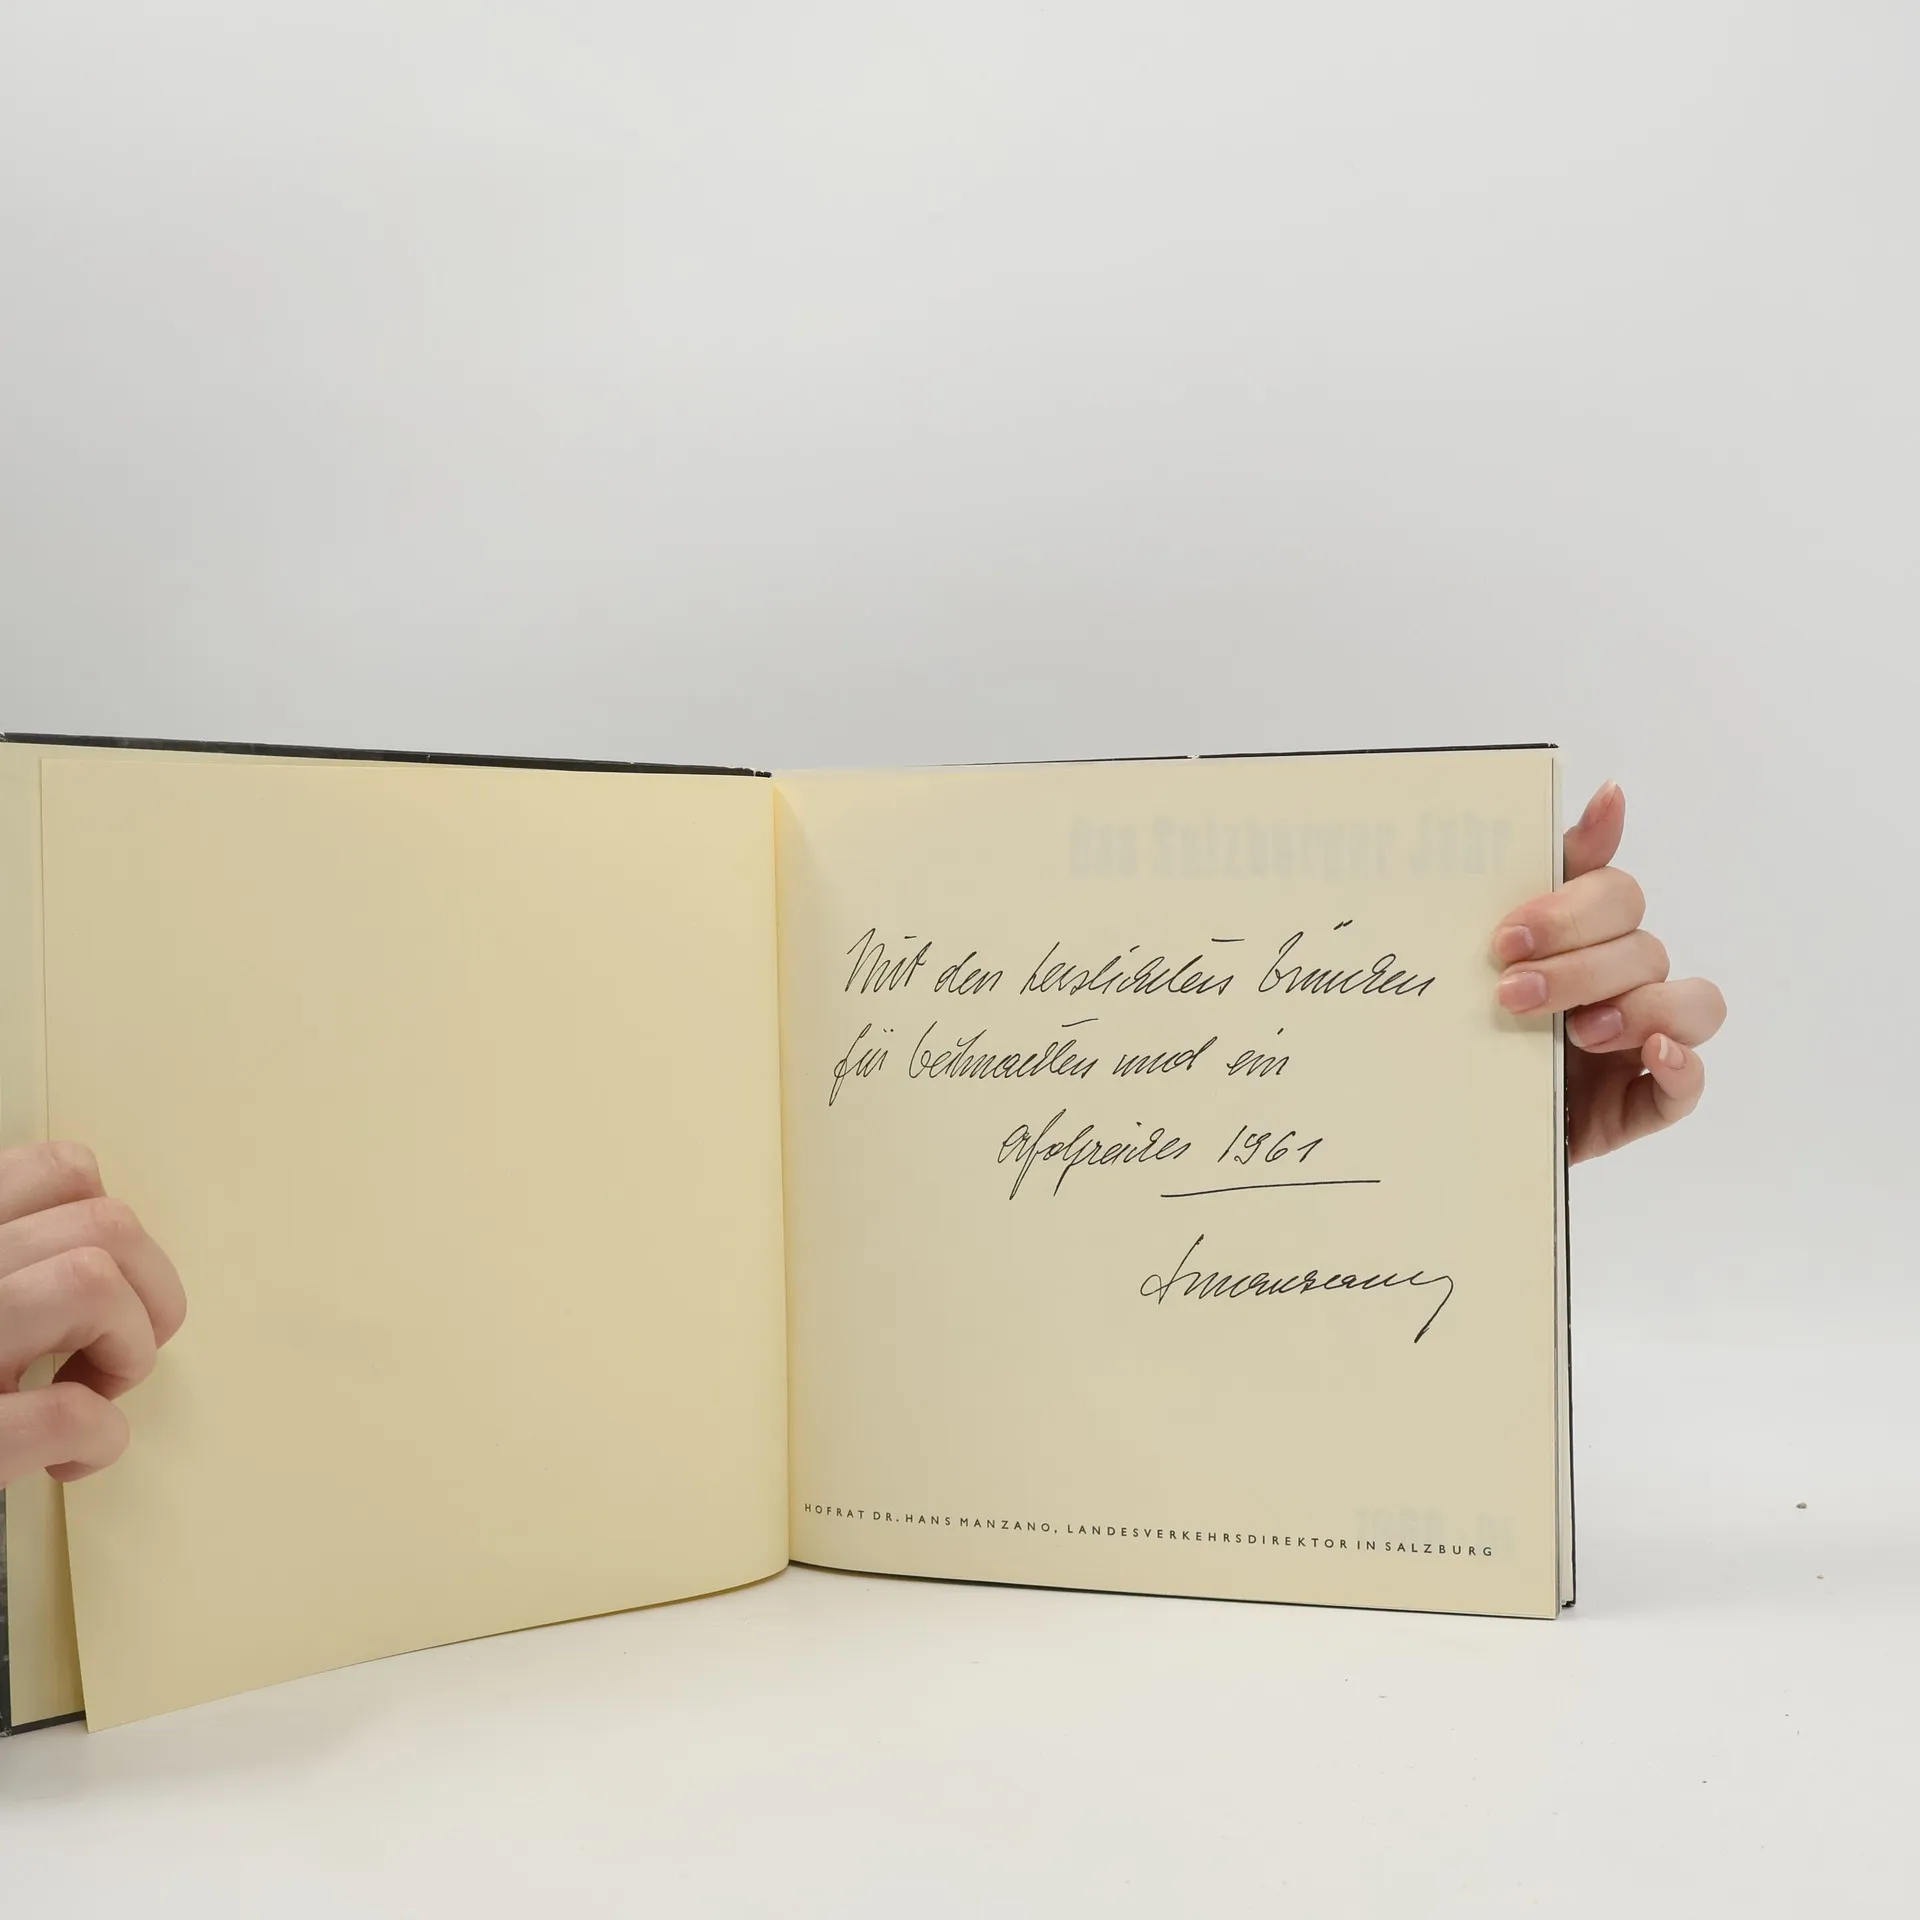 das Salzburger Jahr
Mit den herzlichsten Wünschen
für Weihnachten und ein
erfolgreiches 1961
HOFRAT DR. HANS MANZANO, LANDESVERKEHRSDIREKTOR IN SALZBURG